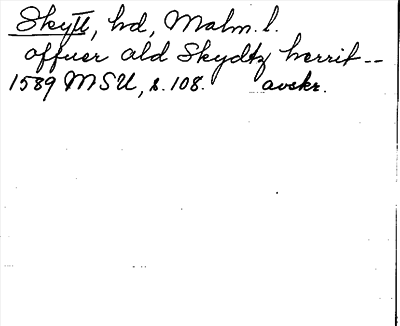 Skytts, hd, Malm. l.
offuer ald Skydtz herrit --
1589 MSU, s. 108. avskr.